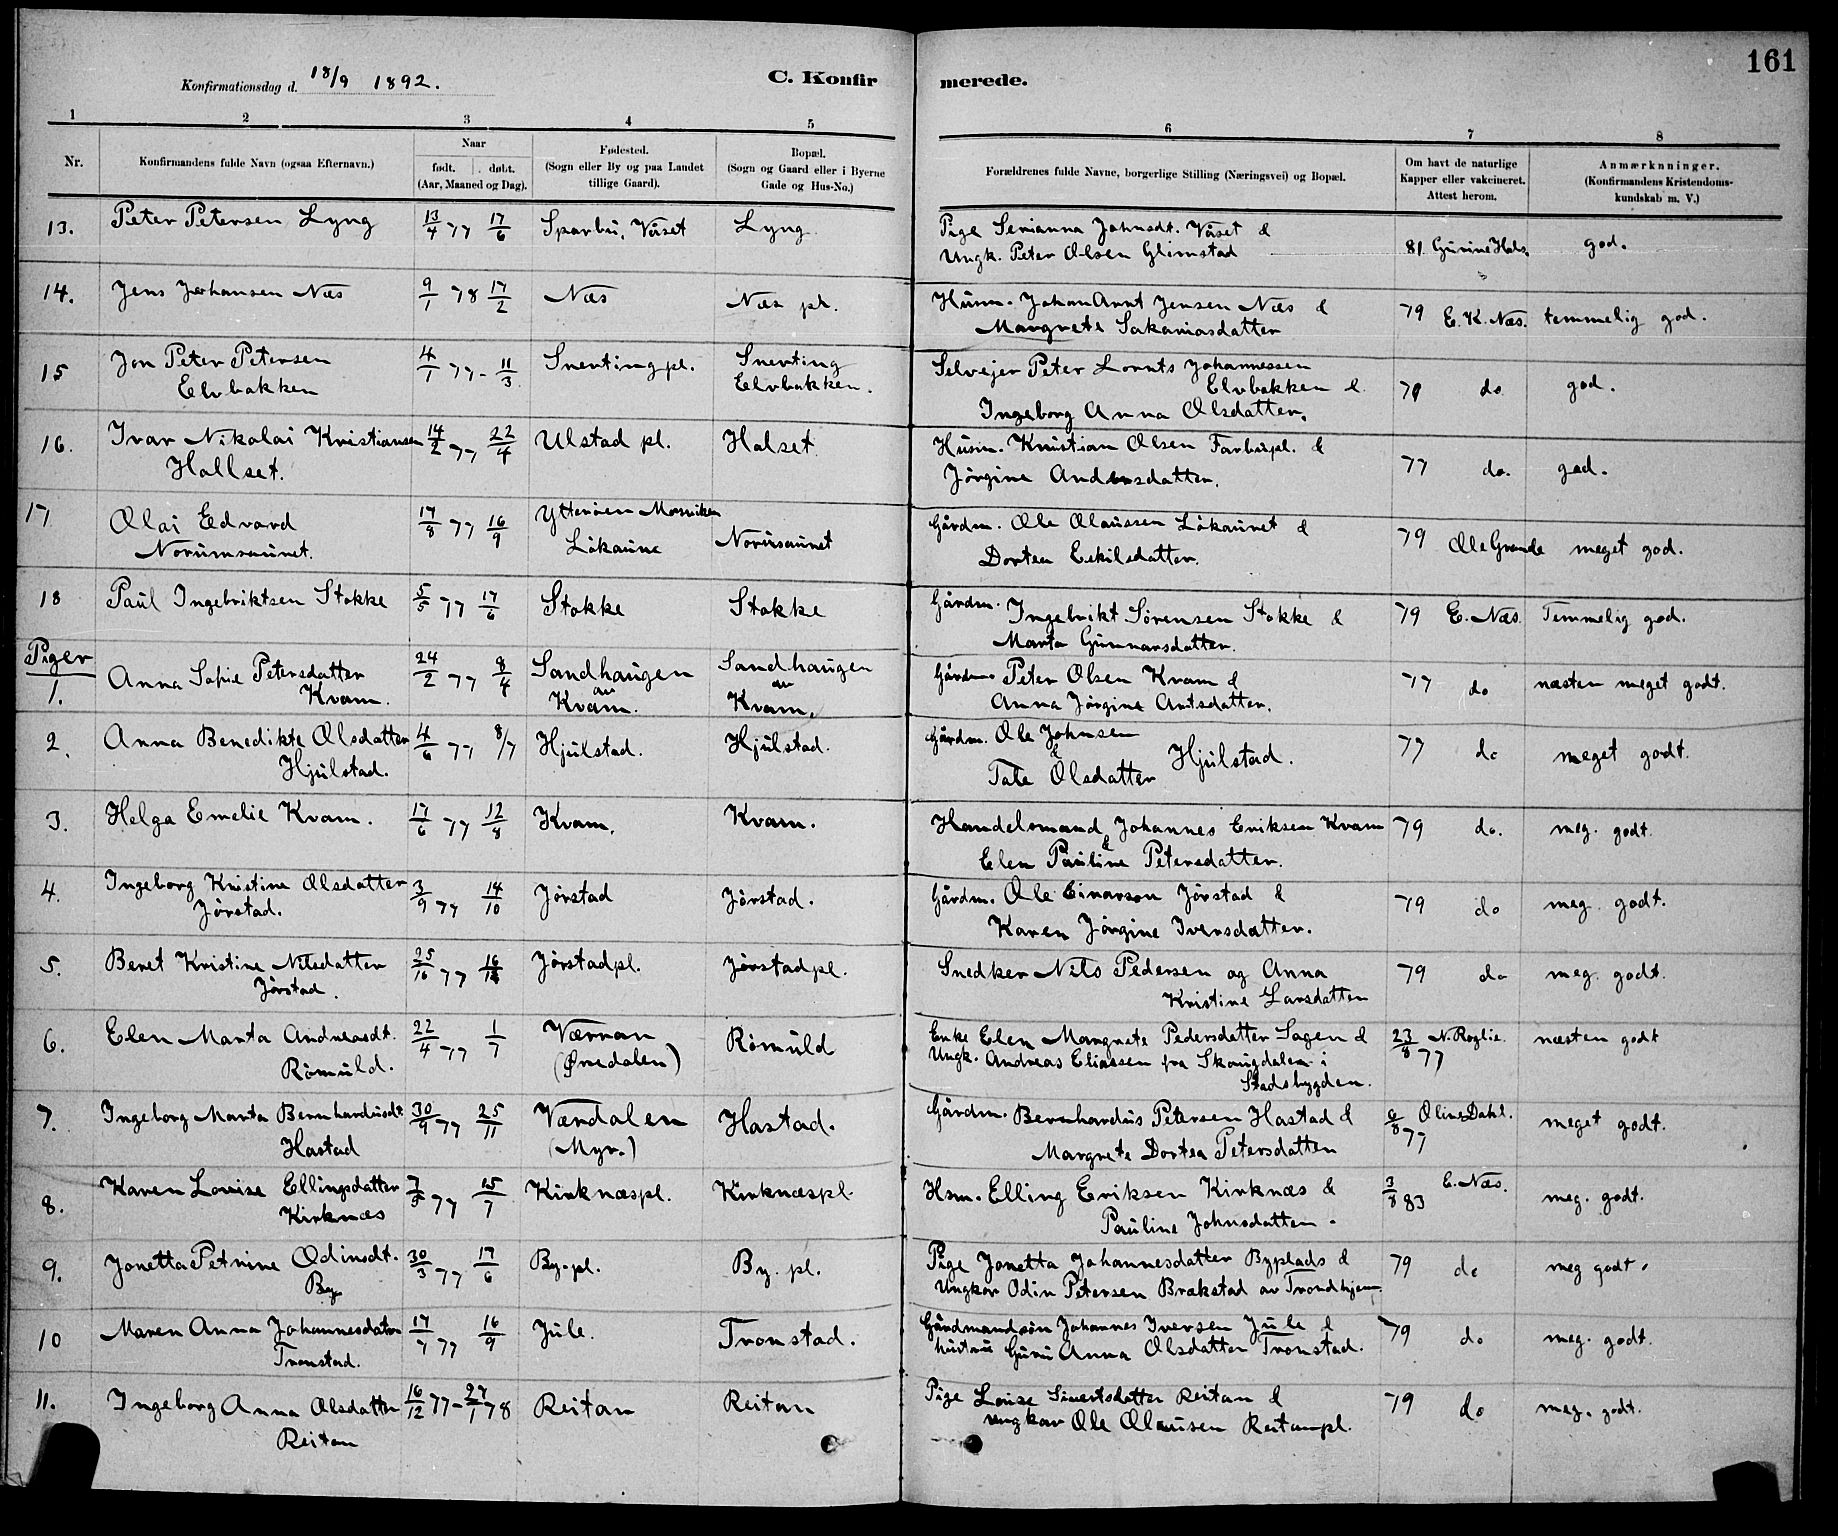 161
Konfirmationsdag d. 18/9 1892.
C. Konfirmerede.
1 2 3 4 5 6 7 8
Nr.
Konfirmandens fulde Navn (ogsaa Efternavn.)
Naar
født. døbt.
(Aar, Maaned og Dag).
Fødested.
(Sogn eller By og paa Landet
tillige Gaard).
Bopæl.
(Sogn og Gaard eller i Byerne
Gade og Hus-No.)
Forældrenes fulde Navne, borgerlige Stilling (Næringsvei) og Bopæl.
Om havt de naturlige
Kapper eller vakcineret.
Attest herom.
Anmærkninger.
(Konfirmandens Kristendoms-
kundskab m. V.)
13. Peter Petersen Lyng 13/4 77 17/6 Sparbu, Våset Lyng Pige Serianna Johnsdt. Våset &
Ungk. Peter Olsen Glimstad 81 Gurine Hals. god.
14. Jens Johansen Næs 9/1 78 17/2 Næs Næs pl. Husm. Johan Arnt Jensen Næs &
Margrete Sakariasdatter 79 E. K. Næs. temmelig god.
15 Jon Peter Petersen
Elvbakken 4/1 77 - 11/3 Snerting pl. Snerting
Elvbakken. Selvejer Peter Lornts Johannessen
Elvbakken &
Ingeborg Anna Olsdatter. 78 do god.
16. Ivar Nikolai Kristiansen
Hallset. 14/2 77 22/4 Ulstad pl. Halset Husm. Kristian Olsen Farbupl. &
Jørgine Andersdatter. 77 do. god.
17 Olai Edvard
Norumsaunet. 17/8 77 16/9 Ytterøen
Løkaune Norumsaunet Gårdm. Ole Olaussen Løkaunet &
Dortea Eskilsdatter. 79 Ole Grande meget god.
18 Paul Ingebriktsen Stokke 5/5 77 17/6 Stokke Stokke Gårdm. Ingebrikt Sørensen Stokke &
Marta Gunnarsdatter. 79 E. Næs. Temmelig god.
Piger
1. Anna Sofie Petersdatter
Kvam. 24/2 77 8/4 Sandhaugen
av
Kvam. Sandhaugen
av
Kvam. Gårdm. Peter Olsen Kvam &
Anna Jørgine Antsdatter. 77 do næsten meget godt.
2. Anna Benedikte Olsdatter
Hjulstad. 4/6 77 8/7 Hjulstad. Hjulstad. Gårdm. Ole Johnsen
& Hjulstad.
Tale Olsdatter 77 do meget godt.
3. Helga Emelie Kvam. 17/6 77 12/8 Kvam. Kvam. Handelsmand Johannes Eriksen Kvam
&
Elen Pauline Petersdatter. 79 do. meg. godt.
4. Ingeborg Kristine Olsdatter
Jørstad. 3/9 77 14/10 Jørstad Jørstad. Gårdm. Ole Einarson Jørstad &
Karen Jørgine Iversdatter. 79 do meg. godt.
5. Beret Kristine Nilsdatter
Jørstad. 25/10 77 Jørstadpl. Jørstadpl. Snedker Nils Pedersen og Anna
Kristine Larsdatter 79 do meg. godt.
6. Elen Marta Andreasdt.
Rømuld. 22/4 77 1/7 Værran
Rømuld Enke Elen Margrete Pedersdatter Sagen &
Ungk. Andreas Eliassen fra Skaugdalen i
Stadsbygden. 23/8 77 næsten godt
7. Ingeborg Marta Bernhardusdt.
Hastad 30/9 77 25/11 Værdalen
(Myr.) Hastad. Gårdm. Bernhardus Petersen Hastad &
Margrete Dortea Petersdatter 6/8 77 Oline Dahl. meget godt.
8. Karen Lovise Ellingsdatter
Kirknæs 7/5 77 15/7 Kirknæspl. Kirknæspl. Hsm. Elling Eriksen Kirknæs &
Pauline Johnsdatter. 3/8 83 E. Næs. meg. godt.
9. Jonetta Petrine Odinsdt.
By 30/3 77 17/6 By-pl. By. pl. Pige Jonetta Johannesdatter Byplads &
Ungkar Odin Petersen Brækstad av Trondhjem. 79 do meg godt.
10 Maren Anna Johannesdatter
Tronstad. 17/7 77 16/9 Jule. Tronstad. Gårdmandsøn Johannes Iversen Jule &
hustru Guru Anna Olsdatter Tronstad. 79 do meg. godt.
11. Ingeborg Anna Olsdatter
Reitan 16/12 77 - 27/1 78 Reitan Reitan Pige Louise Siuertsdatter Reitan &
ungkar Ole Olausen Reitanpl. 79 do meg. godt.